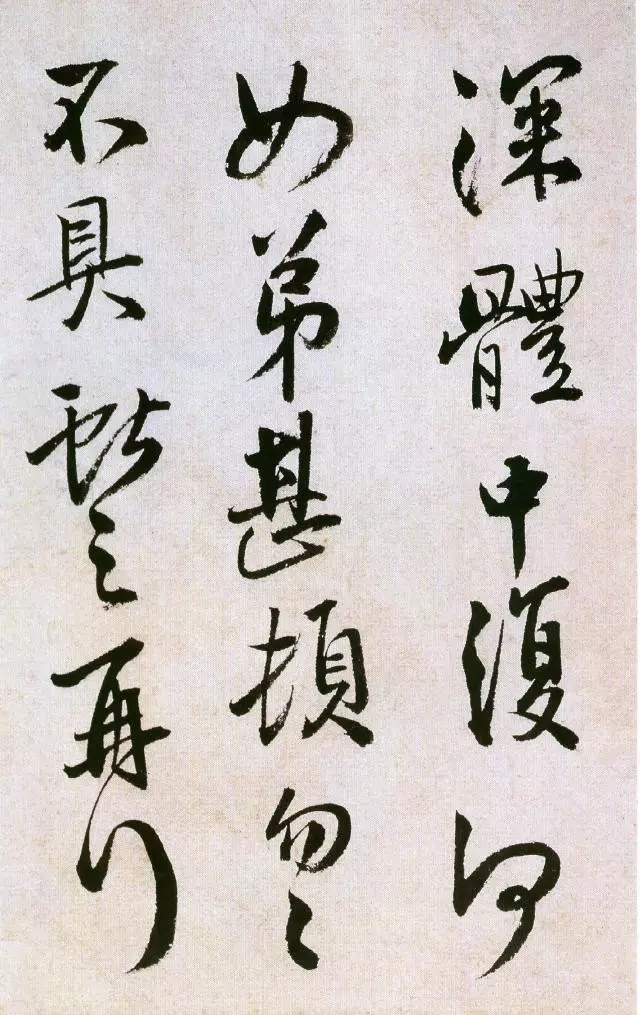 深體中復何
如弟甚頓勿々
不具獻之再拜